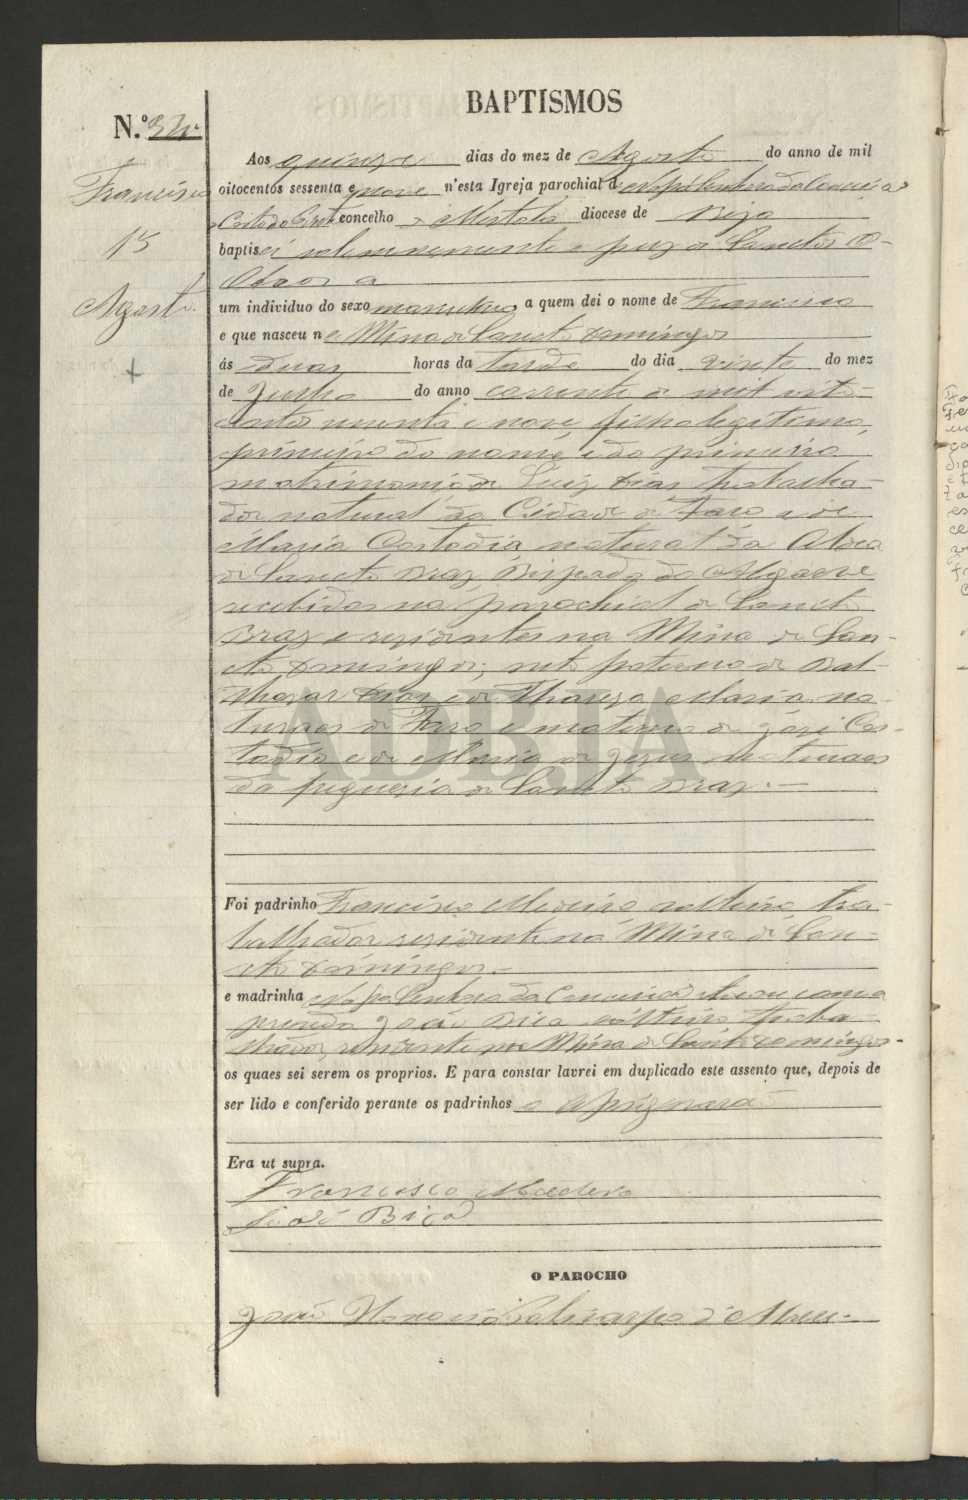 BAPTISMOS
N.º 34
Aos quinze dias do mez de Agosto do anno de mil
Francisco
oitocentos sessenta e nove n'esta Igreja parochial de Senhora da Conceição
concelho Mertola diocese de Beja
15
baptisei solemnemente e puz os Sanctos O-
Oleos a
Agosto
um individuo do sexo masculino a quem dei o nome de Francisco
e que nasceu na Mina de Sancto Domingos
ás duas horas da tarde do dia vinte do mez
de Junho do anno corrente de mil oito-
centos sessenta e nove, filho legitimo,
primeiro do nome, e do primeiro
matrimonio de Luiz Dias trabalha-
dor natural da Cidade de Faro e de
Maria Custodia, natural da Aldea
de Sancto Braz Bispado do Algarve
recebidos na parochial de Sancto
Braz e residentes na Mina de San-
cto Domingos; neto paterno de Bal-
thazar Dias e de Thareza Maria na-
turaes de Faro e materno de José Cus-
todio e de Maria de Jezus naturaes
da freguezia de Sancto Braz.
ADBJA
Foi padrinho Francisco Madeira solteiro tra-
balhador residente na Mina de San-
cto Domingos.
e madrinha Senhora da Conceição
João Bica solteiro traba-
lhador, residente na Mina de Sancto Domingos
os quaes sei serem os proprios. E para constar lavrei em duplicado este assento que, depois de
ser lido e conferido perante os padrinhos o assignara
Era ut supra.
Francisco Madera
Bica
O PAROCHO
João Policarpo d'